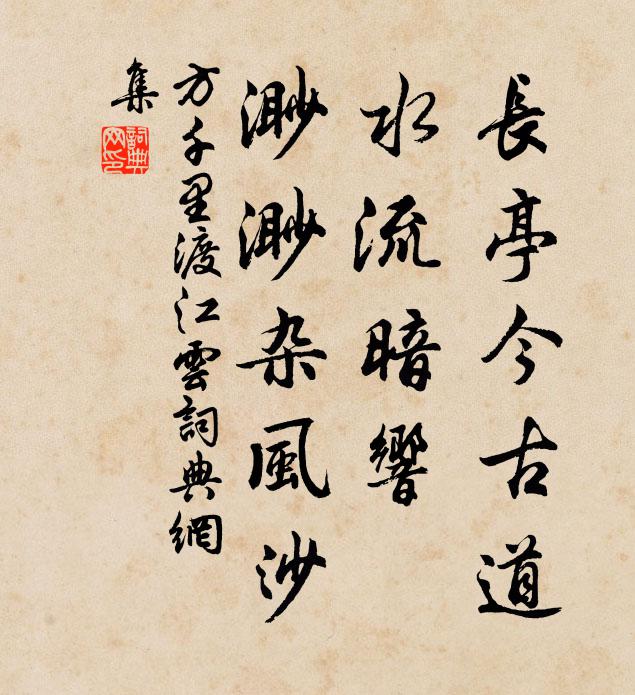 長亭今古道
水流暗響
渺渺杂風沙
方千里渡江雲詞典網
集
詞典網印